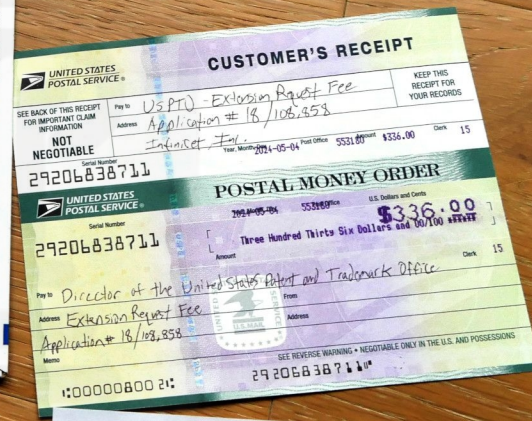 UNITED STATES
POSTAL SERVICE®
CUSTOMER'S RECEIPT
SEE BACK OF THIS RECEIPT
FOR IMPORTANT CLAIM
INFORMATION
NOT
NEGOTIABLE
Pay to USPTO - Extension Request Fee
Address Application # 18/108,858
Infinicet Inc.
KEEP THIS
RECEIPT FOR
YOUR RECORDS
Serial Number
29206838711
Year, Month, 2024-05-04 Post Office 553180 Amount $336.00 Clerk 15
UNITED STATES
POSTAL SERVICE®
POSTAL MONEY ORDER
Serial Number
29206838711
2024-05-04 553180 U.S. Dollars and Cents
$336.00
Amount Three Hundred Thirty Six Dollars and 00/100
Clerk 15
Pay to Director of the United States Patent and Trademark Office
Address Extension Request Fee
From
Application # 18/108,858
Address
U.S. MAIL
Memo
SEE REVERSE WARNING • NEGOTIABLE ONLY IN THE U.S. AND POSSESSIONS
⑆00000800 2⑆ 29206838711⑈